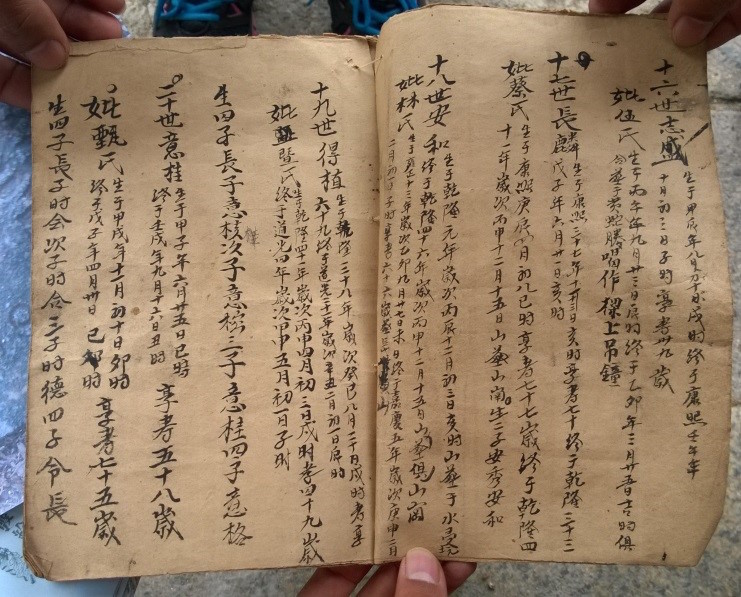 十六世志盛 生于甲辰年八月初十日戌时终于康熙壬午年
十月初三日子时享耆卅九歲
妣伍氏 生于丙午年九月廿三日辰时终于乙卯年三月廿五日吉时俱
仝葬于 唱作樑上吊鐘
十七世長麟 生于康熙三十七年十月三日亥时享耆七十终于乾隆三十三
戊子年六月廿日亥时
妣蔡氏 生于康熙庚辰四月初八巳时享耆七十七歲终于乾隆四
十一年歲次丙申十二月十五日山葬山崗生二子安秀安和
十八世安和 生于乾隆元年歲次丙辰十二月初三日亥时山葬于水
终于乾隆四十六年歲次丙申十二月十五日山葬俱山崗
妣林氏 生于 十三年歲次乙卯九月廿七未日终于嘉慶五年歲次庚申二月
二月初 子时享耆六十六歲 山
十九世得植 生于乾隆三十八年歲次癸巳八月二十日戌时耆享
六十九终于道光二十一年歲次辛丑二月初一日辰时
妣 氏 生于乾隆四十年歲次丙申四月初三日戌时孝四十九歲
终于道光四年歲次甲申五月初一日子时
生四子長子意核次子意棕三子意桂四子意格
二十世意桂 生于甲子年六月廿五日巳时
终于壬戌年九月十六日丑时 享耆五十八歲
妣甄氏 生于甲戌年十二月初十日卯时
终于戊子年四月卅日巳 时 享耆七十五歲
生四子長子时会次子时合三子时德四子令長